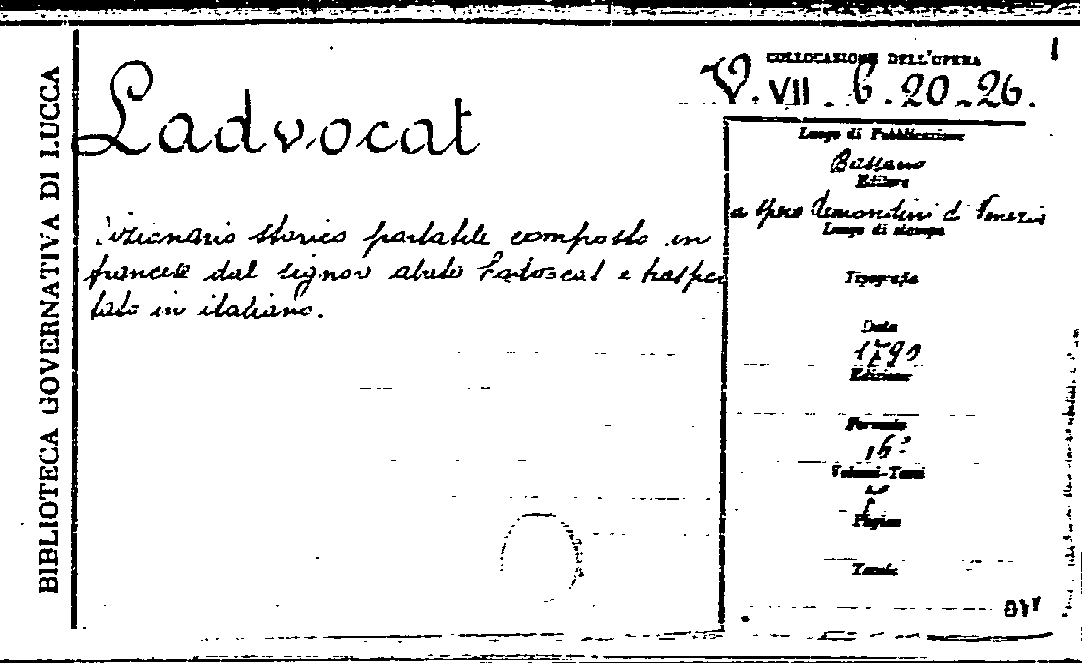 BIBLIOTECA GOVERNATIVA DI LUCCA
Ladvocat
Dizionario storico portatile composto in
francese dal signor abate Ladvocat e traspor
tato in italiano.
COLLOCAZIONE DELL'OPERA
V. VII. b. 20-26.
Luogo di Pubblicazione
Bassano
Editore
a spese Remondini di Venezia
Luogo di stampa
Tipografia
Data
1790
Edizione
Formato
16°
Volumi-Tomi
Pagine
Tavole